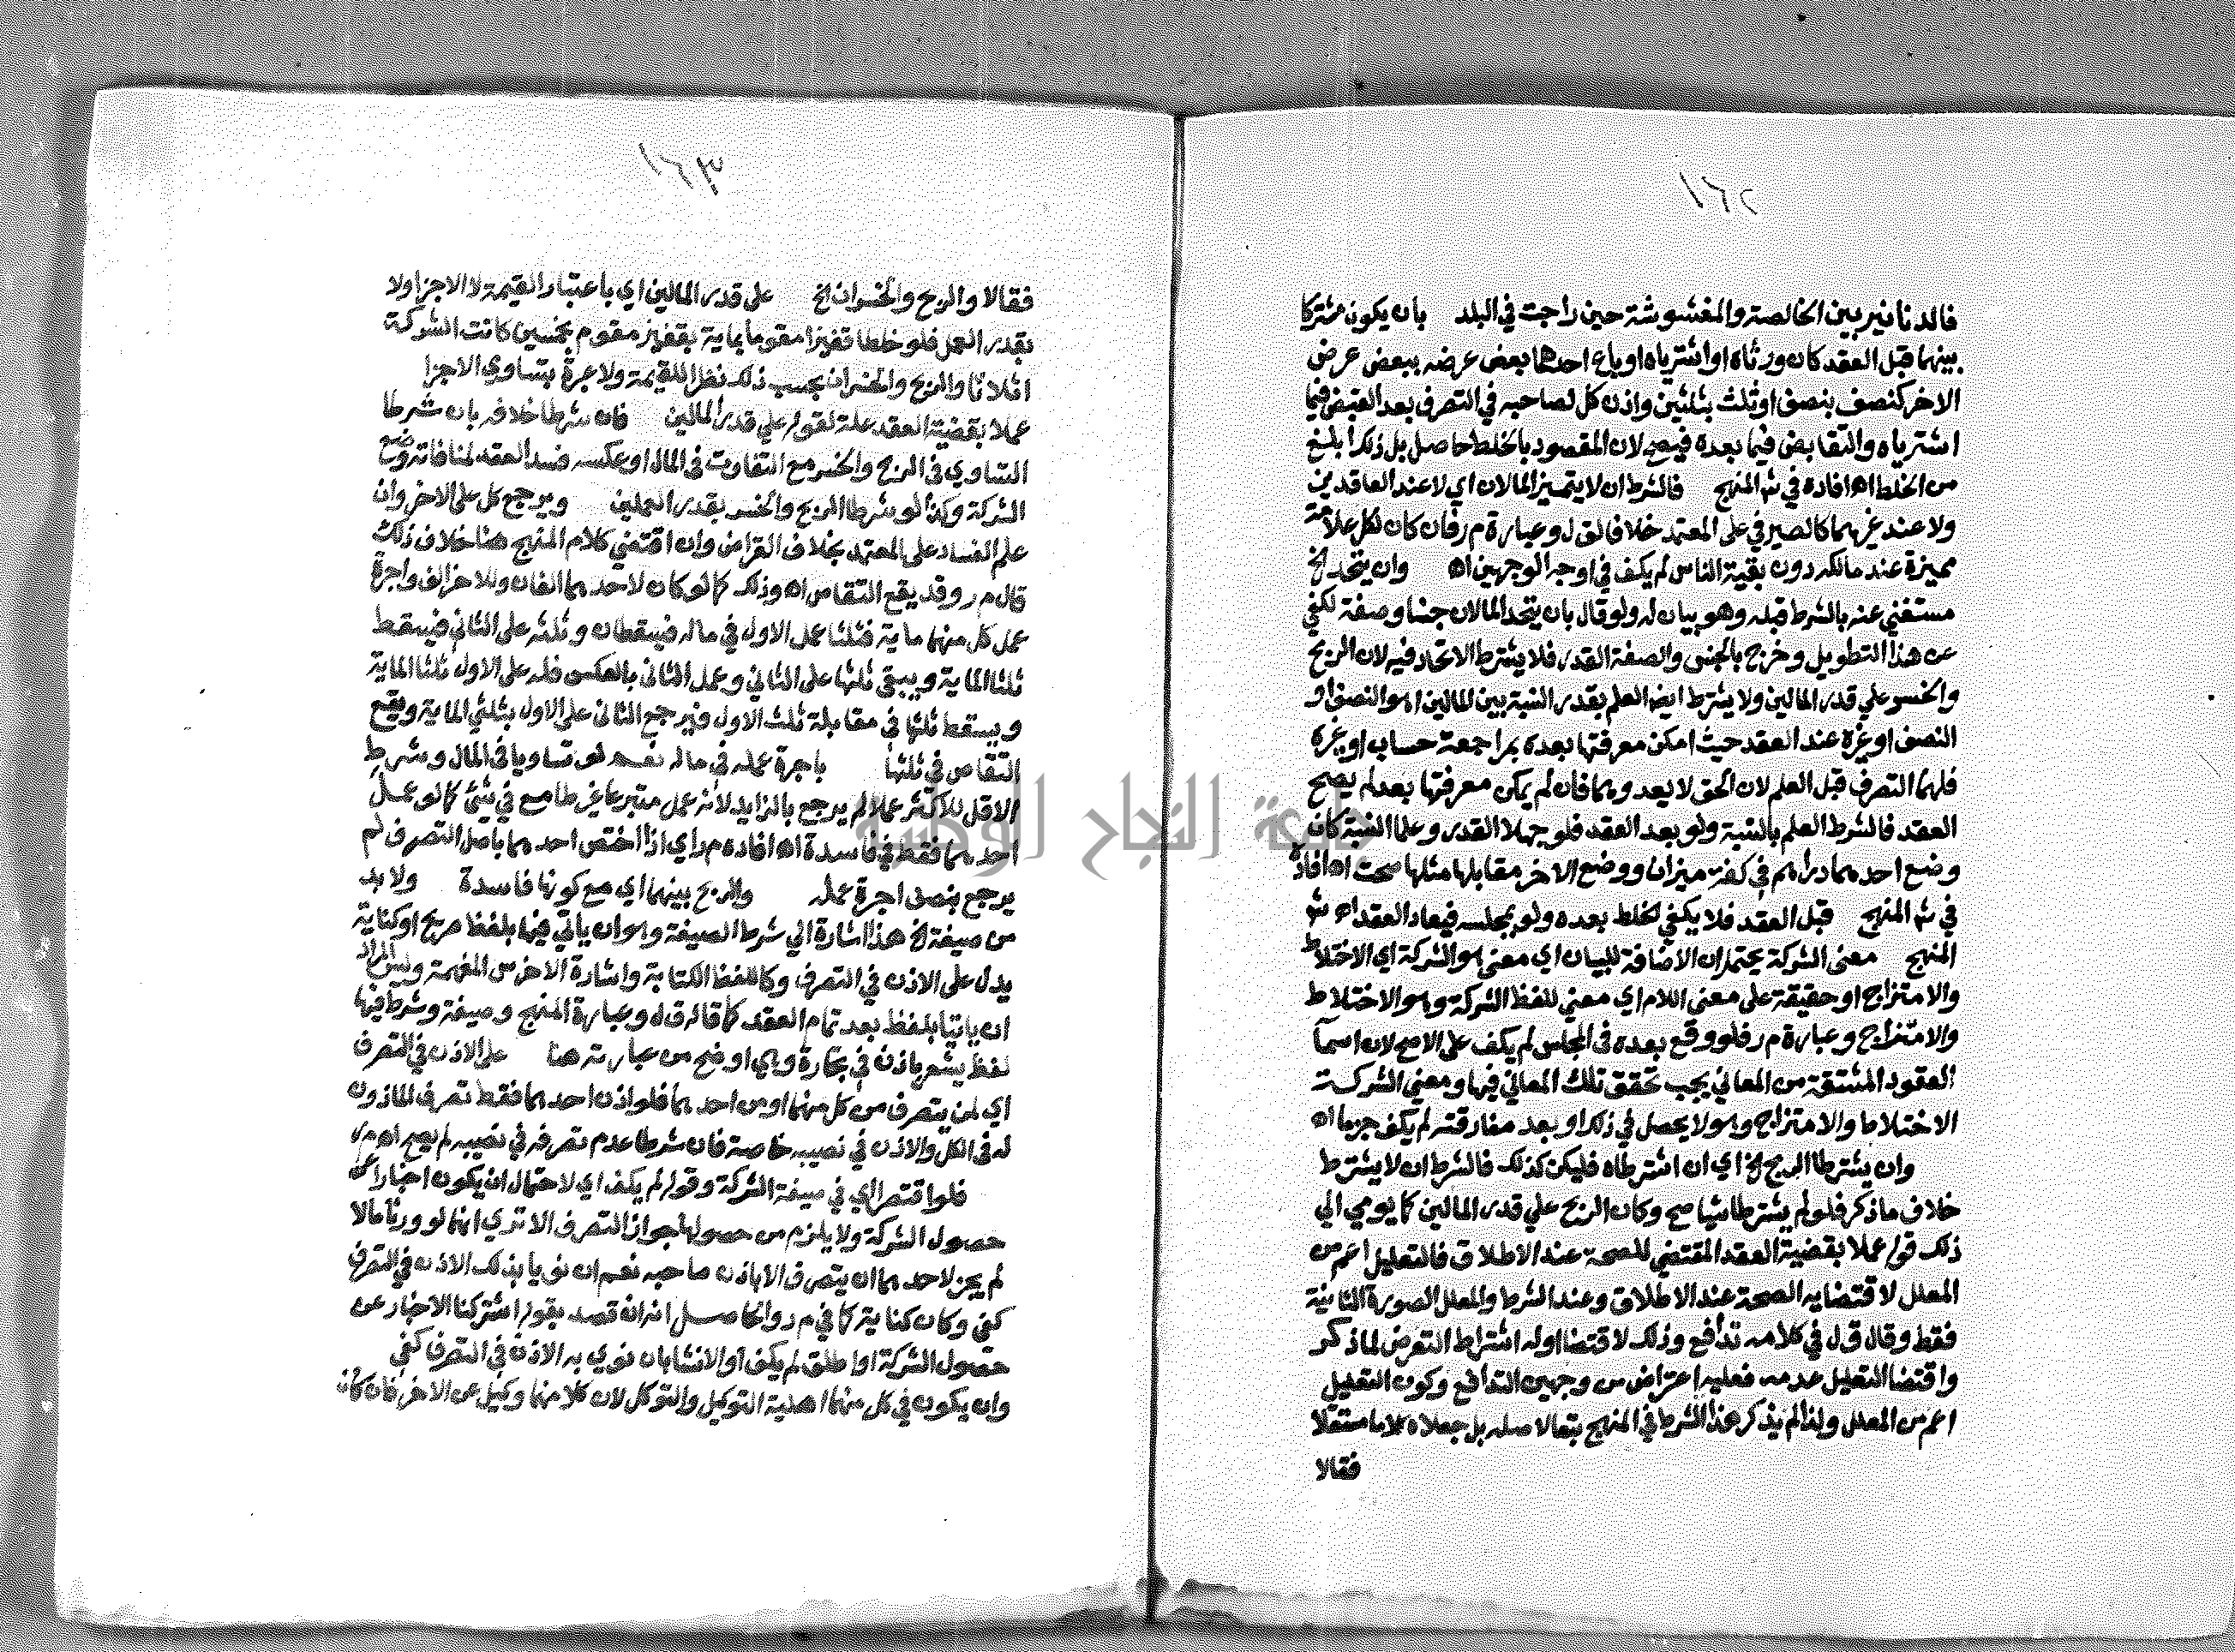 ١٦٢
فالدنانير بين الخالصة والمغشوشة حين راجت في البلد بان يكون مشتركا
بينهما قبل العقد كان ورثاه او اشترياه او باع احدهما بعض عرضه ببعض عرض
الاخر كنصف بنصف او ثلث بثلثين واذن كل لصاحبه في التصرف بعد القبض فيما
اشترياه والتقابض فيما بعده فيصح لان المقصود بالخلط حاصل بل ذلك ابلغ
من الخلط اه افاده في شم المنهج فالشرط ان لا يتميز المالان اي لا عند العاقدين
ولا عند غيرهما كالصيرفي على المعتمد خلافا لق ل وعبارة م ر فان كان لكل علامة
مميزة عند مالكه دون بقية الناس لم يكف في اوجه الوجهين اه وان يتحد الخ
مستغني عنه بالشرط قبله وهو بيان له ولو قال بان يتحد المالان جنسا وصفة لكفي
عن هذا التطويل وخرج بالجنس والصفة القدر فلا يشترط الاتحاد فيه لان الربح
والخسر علي قدر المالين ولا يشترط ايضا العلم بقدر النسبة بين المالين اهو النصف او
النصف او غيره عند العقد حيث امكن معرفتها بعده بمراجعة حساب او غيره
فلهما التصرف قبل العلم لان الحق لا يعدوهما فان لم يمكن معرفتها بعد لم يصح
العقد فالشرط العلم بالنسبة ولو بعد العقد فلو جهلا القدر وعلما النسبة كان
وضع احدهما دراهم في كفة ميزان ووضع الاخر مقابلها مثلها صحت اه افاده
في شم المنهج قبل العقد فلا يكفي لخلط بعده ولو بمجلسه فيعاد العقد اه شم
المنهج معنى الشركة يحتمل ان الاضافة للبيان اي معنى هو الشركة اي الاختلاط
والامتزاج او حقيقة على معنى اللام اي معني للفظ الشركة وهو الاختلاط
والامتزاج وعبارة م ر فلو وقع بعده في المجلس لم يكف على الاصح لان اسما
العقود المشتقة من المعاني يجب تحقق تلك المعاني فيها ومعني الشركة
الاختلاط والامتزاج وهو لا يحصل في ذلك او بعد مفارقته لم يكف جزما اه
وان يشترطا الربح الخ اي ان اشترطاه فليكن كذلك فالشرط ان لا يشترط
خلاف ما ذكر فلو لم يشترطا شيا صح وكان الربح علي قدر المالين كما يومي الي
ذلك قوله عملا بقضية العقد المقتضي للصحة عند الاطلاق فالتعليل اعم من
المعلل لاقتضايه الصحة عند الاطلاق وعند الشرط والمعلل الصورة الثانية
فقط وقال ق ل في كلامه تدافع وذلك لاقتضا اوله اشتراط التعرض لما ذكر
واقتضا التعليل عدمه فعليه اعتراض من وجهين التدافع وكون التعليل
اعم من المعلل ولذا لم يذكر هذا الشرط في المنهج تبعا لاصله بل جعلاه كلاما مستقلا
فقالا
١٦٣
فقالا والربح والخسران الخ على قدر المالين اي باعتبار القيمة لا الاجزا ولا
بقدر العمل فلو خلطا قفيزا مقوما بماية بقفيز مقوم بخمسين كانت الشركة
اثلاثا والربح والخسران بحسب ذلك نظرا للقيمة ولا عبرة بتساوي الاجزا
عملا بقضية العقد علة لقوله علي قدر المالين فان شرطا خلافه بان شرطا
التساوي في الربح والخسر مع التفاوت في المال او عكسه فسد العقد لمنافاته وضع
الشركة وكذا لو شرطا الربح والخسر بقدر العملين ويرجع كل على الاخر وان
علم الفساد على المعتمد بخلاف القراض وان اقتضي كلام المنهج هنا خلاف ذلك
قال م ر وقد يقع التقاص اه وذلك كما لو كان لاحدهما الفان وللاخر الف واجرة
عمل كل منهما ماية فثلثا عمل الاول في ماله فيسقطان وثلثه على الثاني فيسقط
ثلثا الماية ويبقى ثلثها على الثاني وعمل الثاني بالعكس فله على الاول ثلثا الماية
ويسقط ثلثها في مقابلة ثلث الاول فيرجع الثاني على الاول بثلثي الماية ويقع
التقاص في ثلثها باجرة عمله في ماله نعم لو تساويا في المال وشرط
الاقل للاكثر عملا لم يرجع بالزايد لانه عمل متبرعا غير طامع في شيئ كما لو عمل
احدهما فقط في فاسدة اه افاده م ر اي اذا اختص احدهما باصل التصرف لم
يرجع بنصف اجرة عمله والربح بينهما اي مع كونها فاسدة ولا بد
من صيغة الخ هذا اشارة الي شرط الصيغة وهو ان ياتي فيها بلفظ صريح او كناية
يدل على الاذن في التصرف وكاللفظ الكتابة واشارة الاخرس المفهمة وليس المراد
ان ياتيا بلفظ بعد تمام العقد كما قاله ق ل وعبارة المنهج وصيغة وشرط فيها
لفظ يشعر باذن في تجارة وهي اوضح من عبارته هنا على الاذن في التصرف
اي لمن يتصرف من كل منهما او من احدهما فلو اذن احدهما فقط تصرف الماذون
له في الكل والاذن في نصيبه خاصة فان شرطا عدم تصرفه في نصيبه لم يصح اه م ر
فلو اقتصرا اي في صيغة الشركة وقوله لم يكف اي لاحتمال ان يكون اخبارا عن
حصول الشركة ولا يلزم من حصولها جواز التصرف الا تري انهما لو ورثا مالا
لم يجز لاحدهما ان يتصرف الا باذن صاحبه نعم ان نويا بذلك الاذن في التصرف
كفي وكان كناية كما في م ر والحاصل انه ان قصد بقوله اشتركنا الاخبار عن
حصول الشركة او اطلق لم يكف او الانشا بان نوي به الاذن في التصرف كفي
وان يكون في كل منهما اهلية التوكيل والتوكل لان كلا منهما وكيل عن الاخر فان كان
جامعة النجاح الوطنية